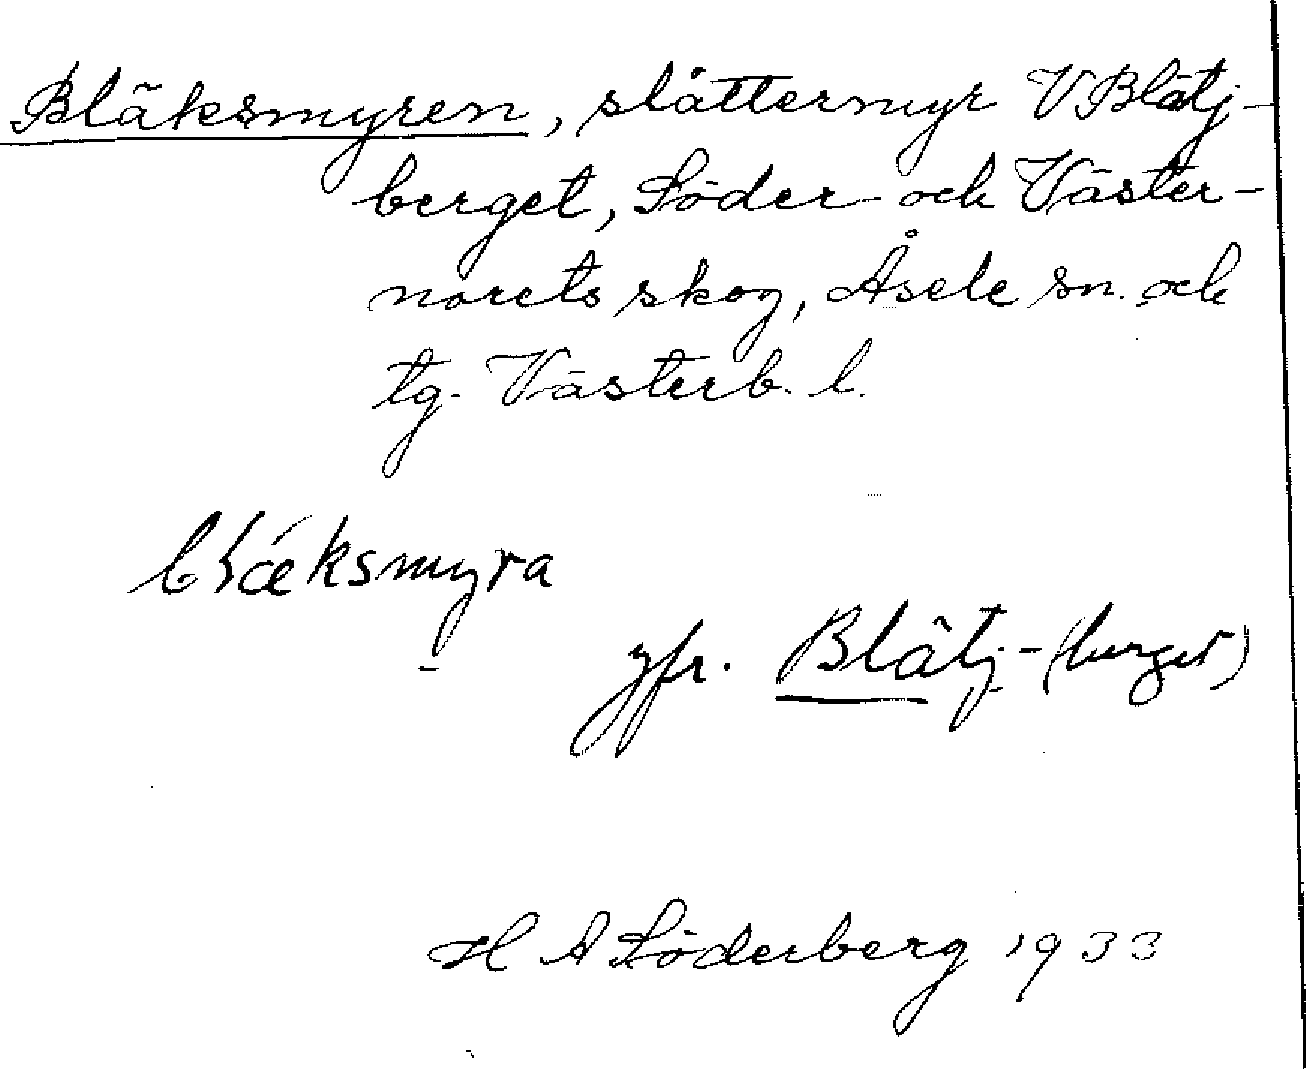 Bläksmyren, slåttermyr V Blätj-
berget, Söder- och Väster-
norets skog, Åsele sn. och
tg. Västerb. l.
blǽksmyra
jfr. Blätj-(berget)
H A Söderberg 1933